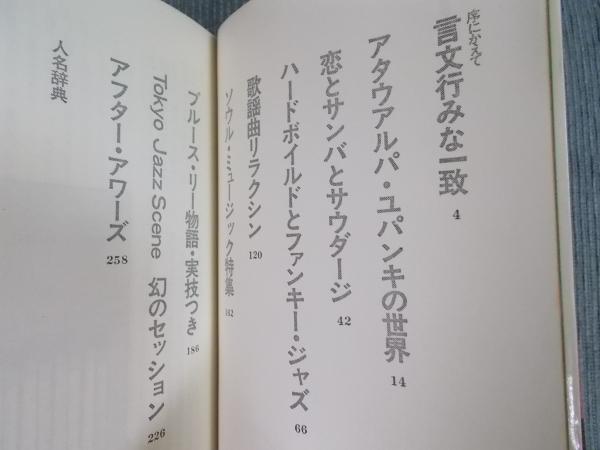 序にかえて
言文行みな一致 4
アタウアルパ・ユパンキの世界 14
恋とサンバとサウダージ 42
ハードボイルドとファンキー・ジャズ 66
歌謡曲リラクシン 120
ソウル・ミュージック特集 142
ブルース・リー物語・実技つき 186
Tokyo Jazz Scene 幻のセッション 226
アフター・アワーズ 258
人名辞典